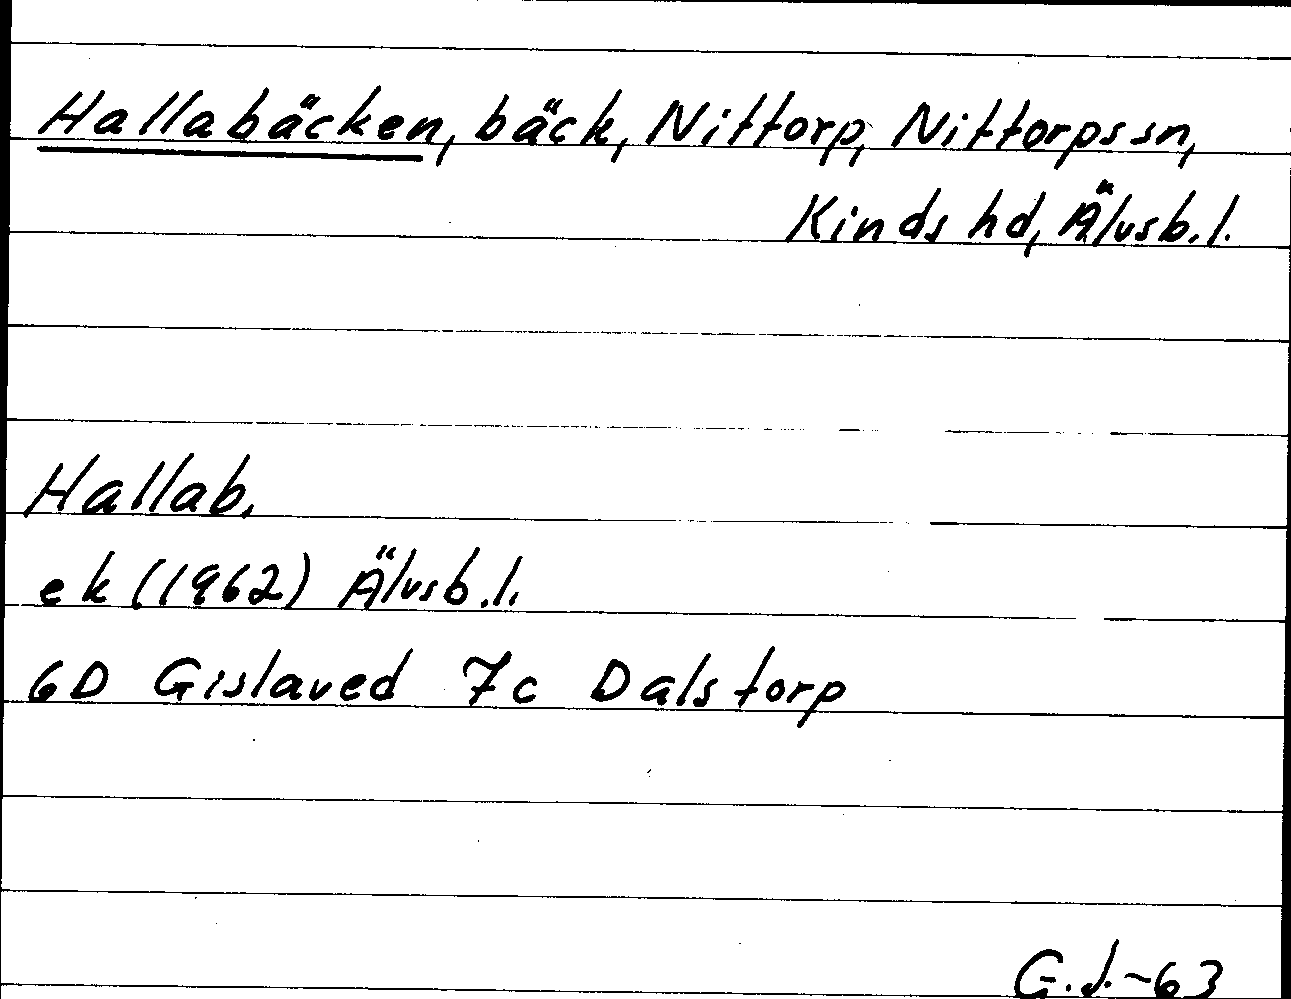 Hallabäcken, bäck, Nittorp, Nittorps sn,
Kinds hd, Älvsb. l.
Hallab.
ek (1962) Älvsb. l.
6D Gislaved 7c Dalstorp
G.J.-63